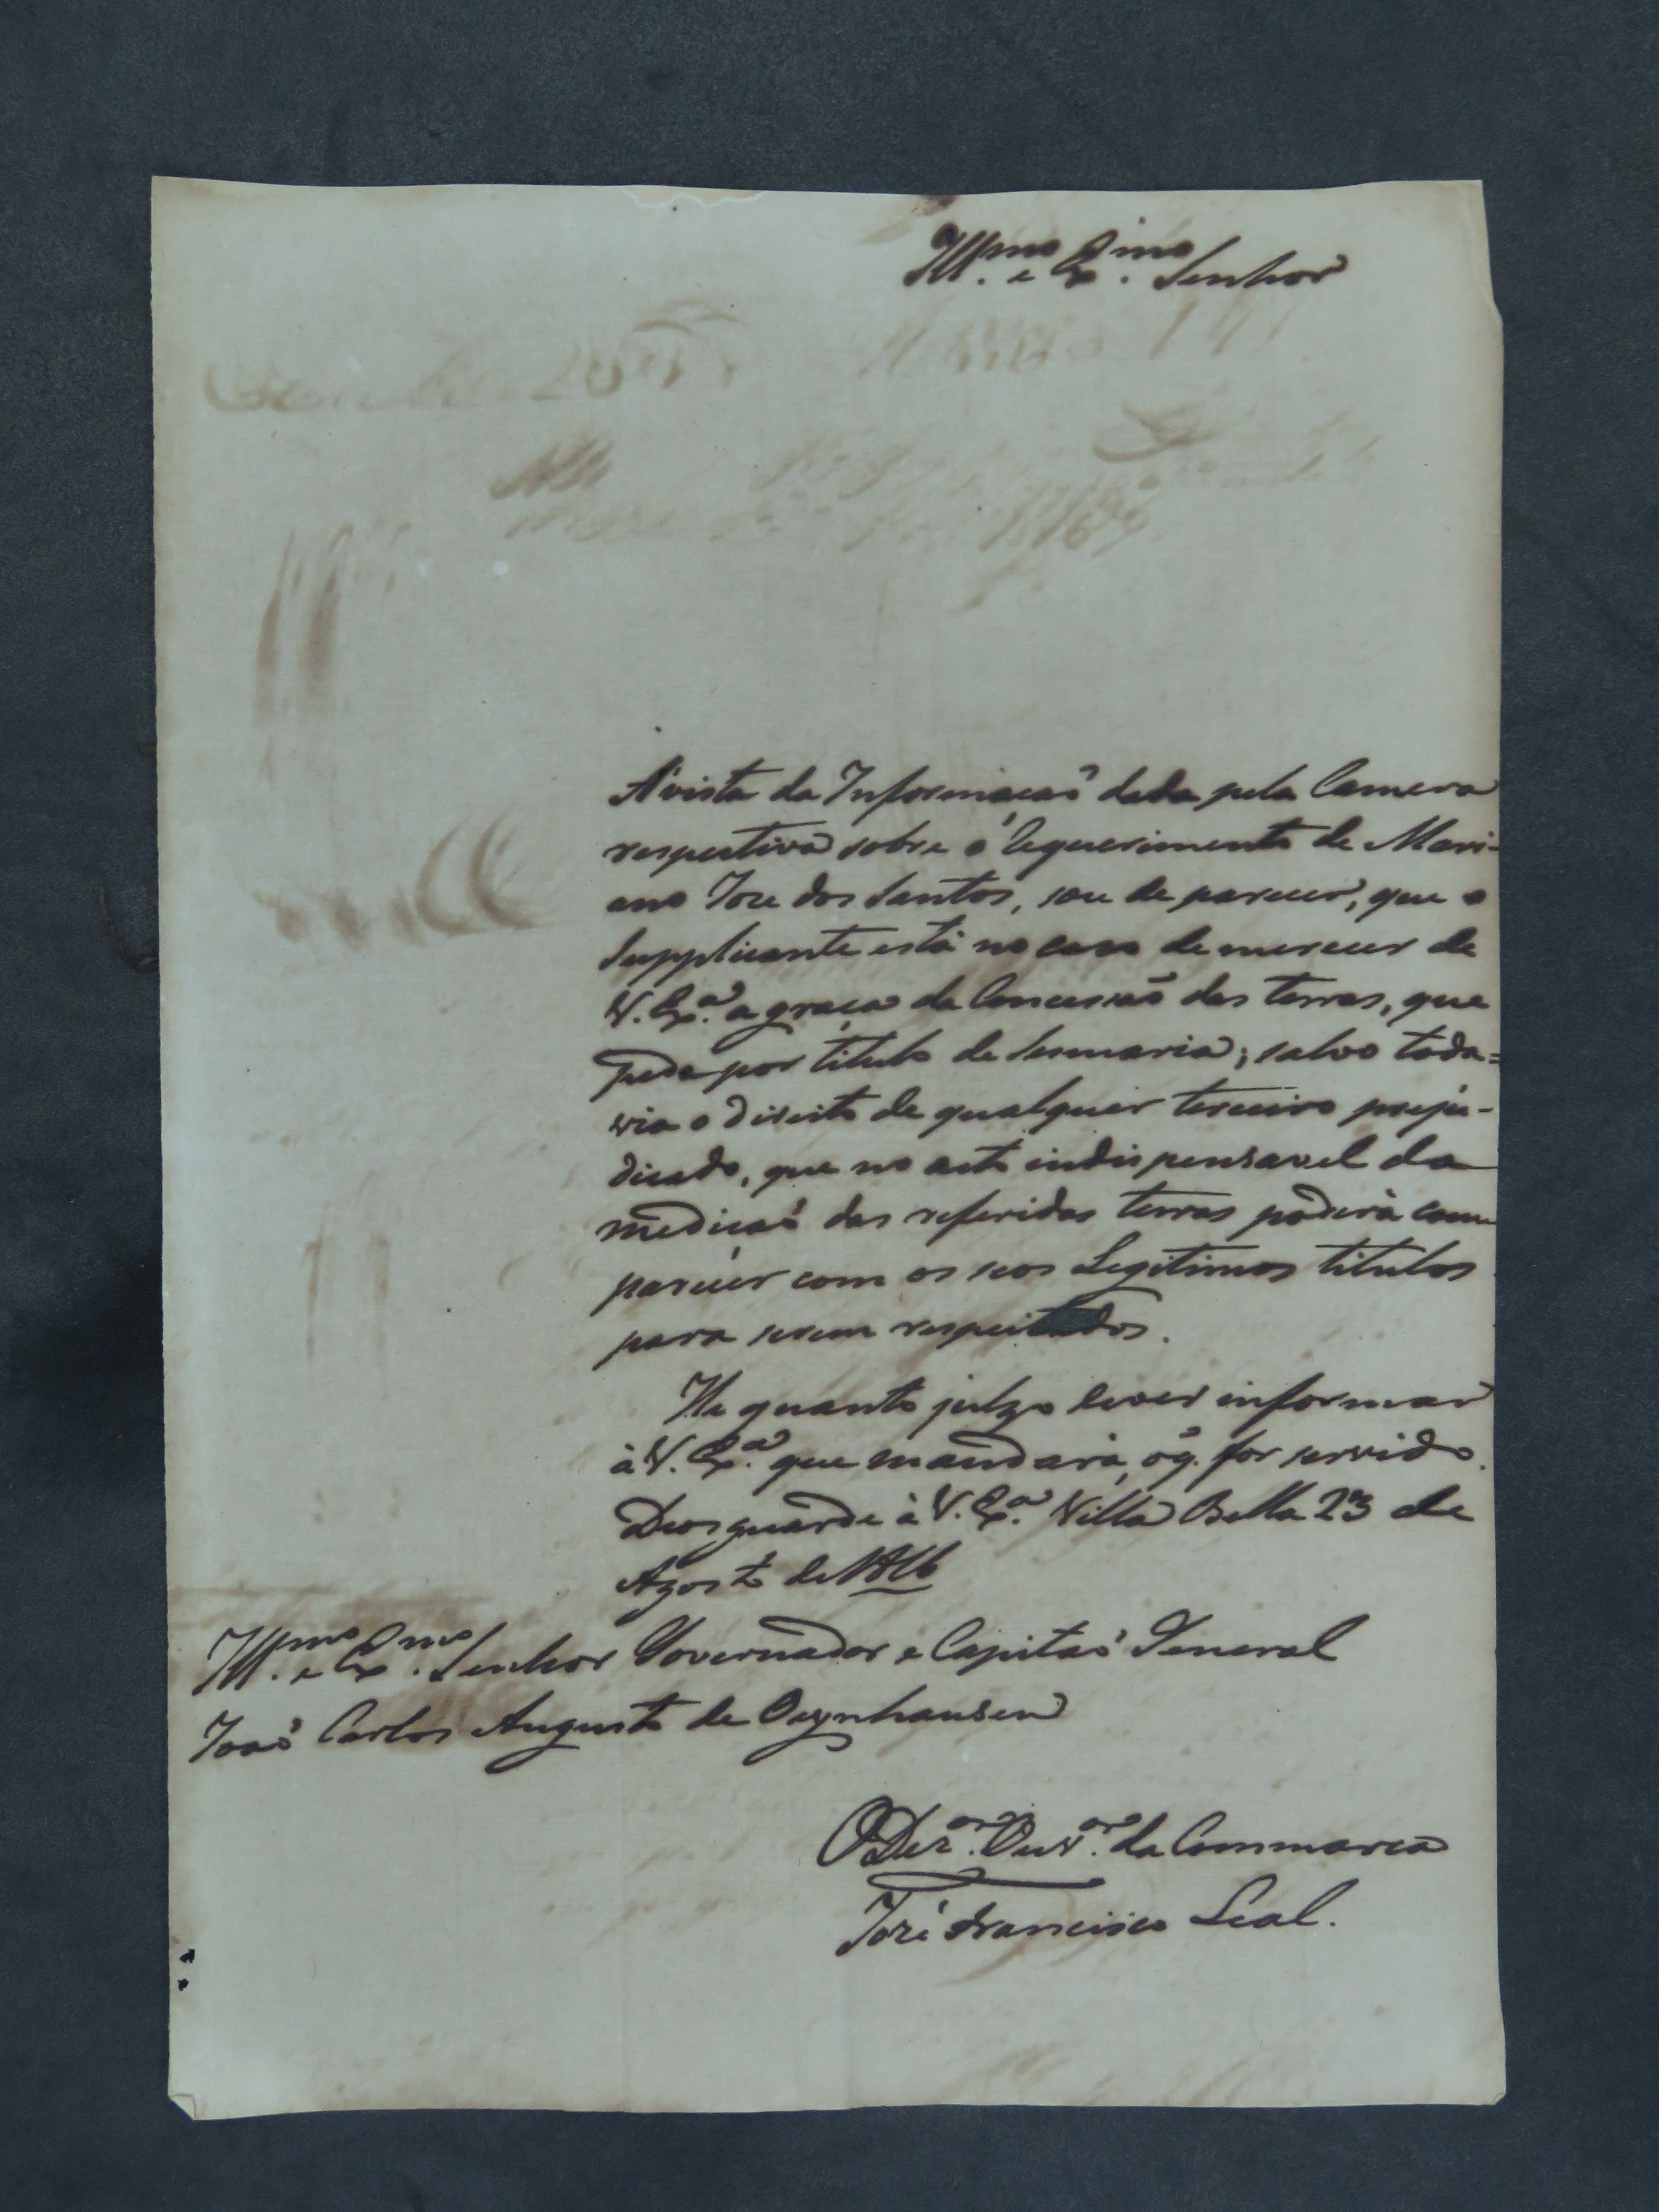 Ill.mo e Ex.mo Senhor
A' vista da Informaçaõ dada pela Camera
respectiva sobre o Requerimento de Mari-
ano Joze dos Santos, sou de parecer, que o
Supplicante está no caso de merecer de
V. Ex.a a graça da Concessaõ das terras, que
pede por titulo de Sesmaria; salvo toda=
via o direito de qualquer terceiro preju-
dicado, que no acto indispensavel da
mediçaõ das referidas terras poderà com-
parecer com os seos Legitimos titulos
para serem respeitados.
He quanto julgo dever informar
à V. Ex.a que mandará, o q. for servido.
Deos guarde à V. Ex.a Villa Bella 23 de
Agosto de 1816
Ill.mo e Ex.mo Senhor Governador e Capitaõ General
Joaõ Carlos Augusto de Oeynhausen
O Dez.or Ouv.or da Commarca
Jozé Francisco Leal.